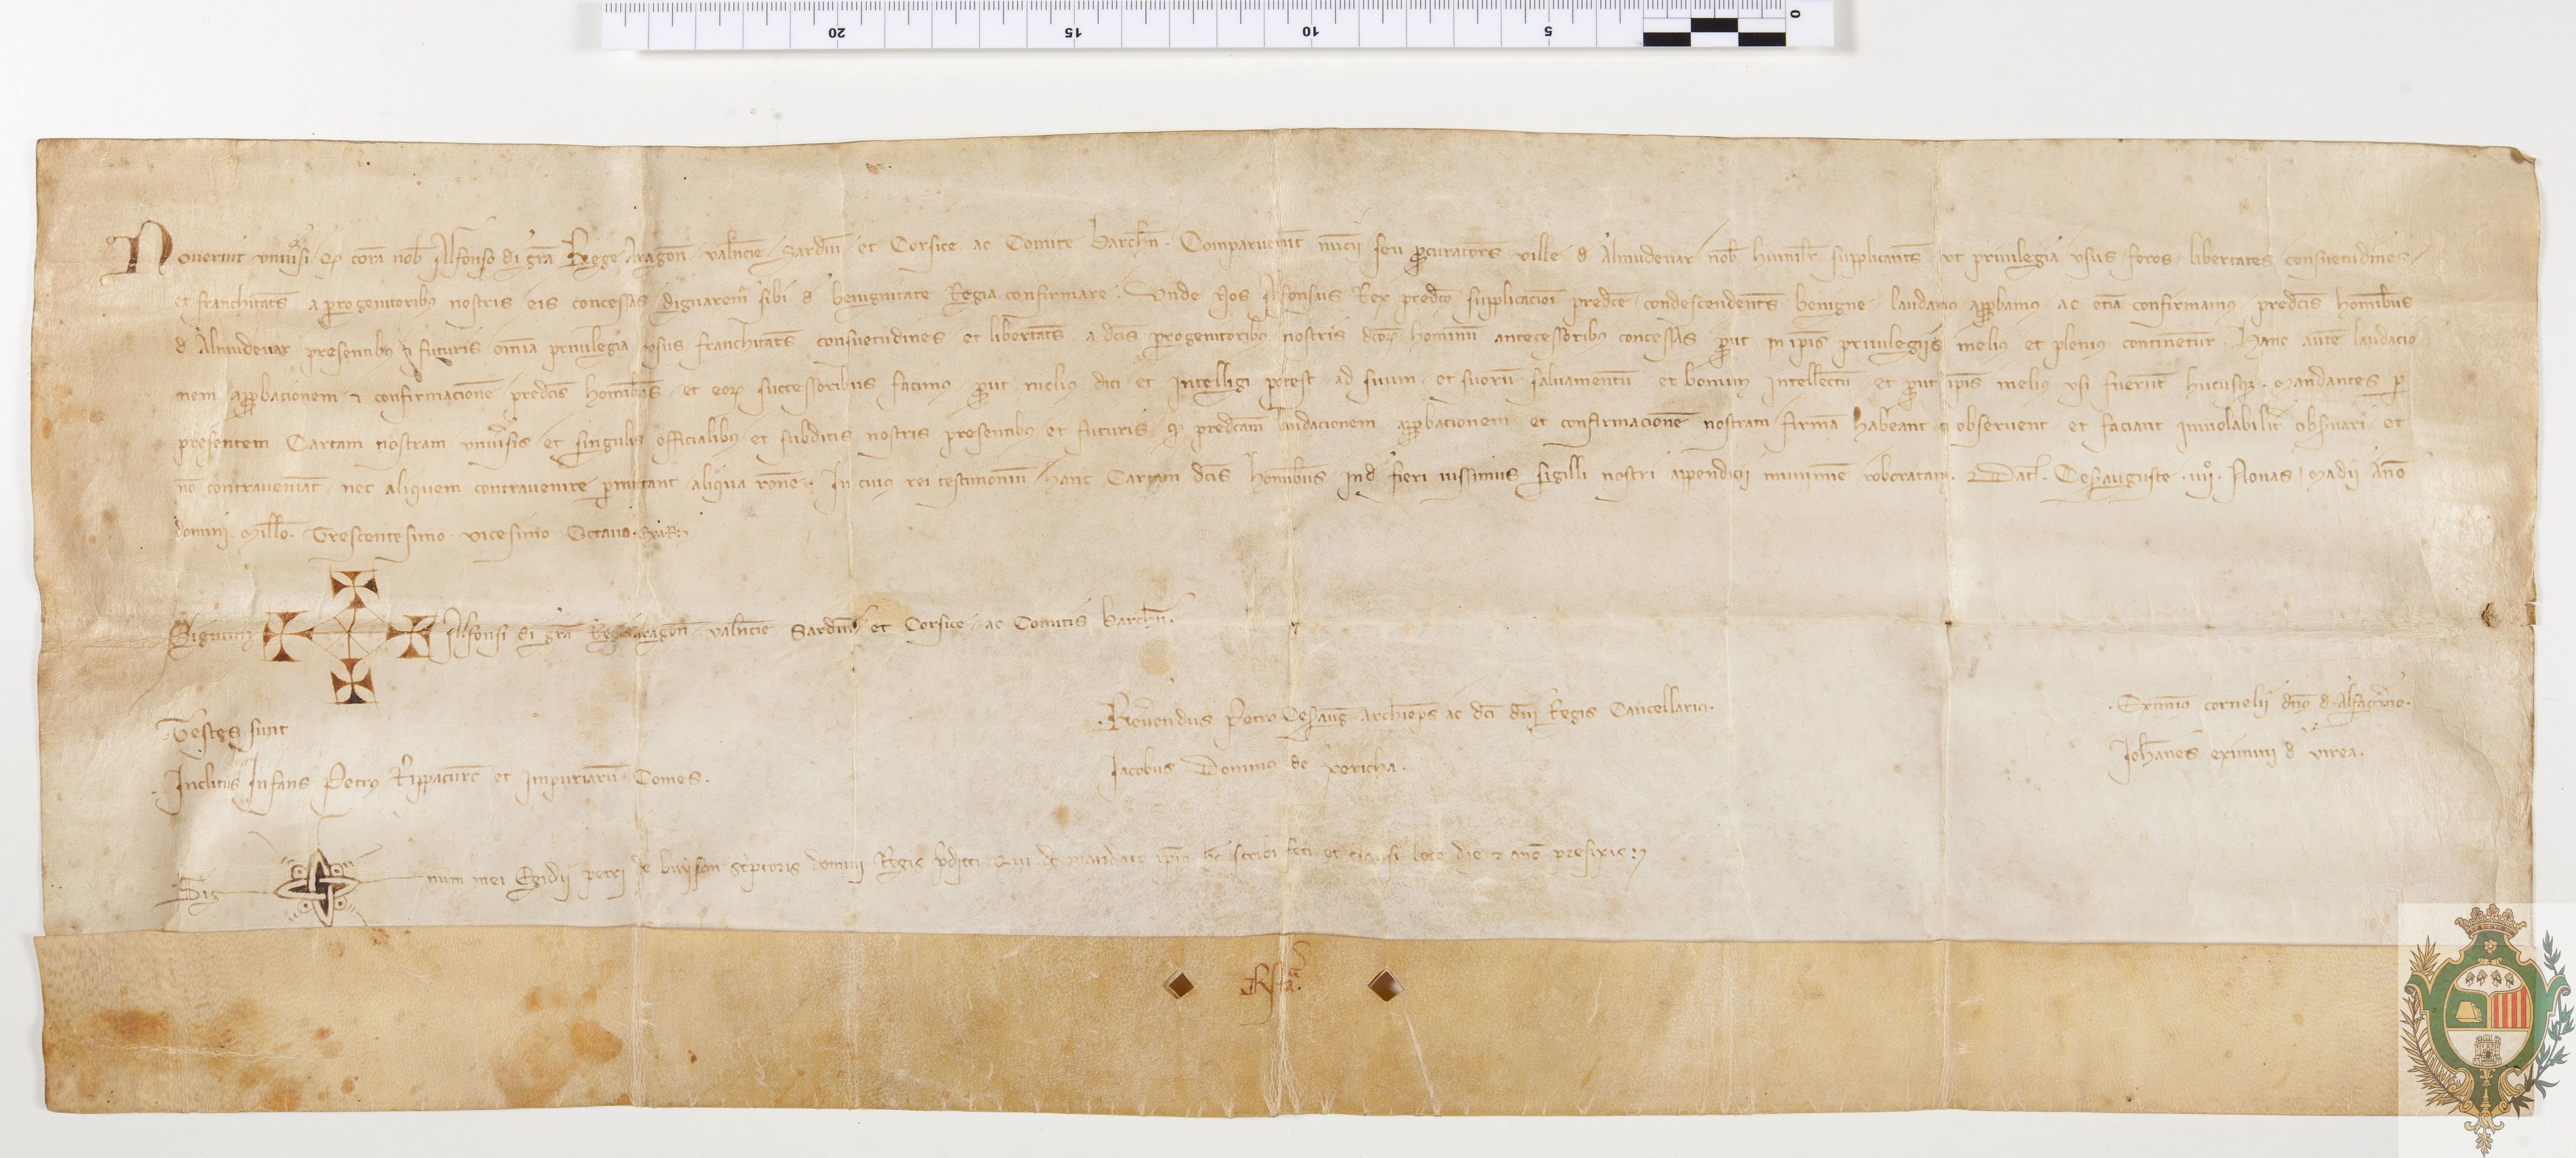 Noverint univ̄si q̄ corā nob̄ Alfonso dī grā Rege Aragon̄ valn̄cie Sardin̄ et Corsice ac Comite barchn̄. Comparuerūt nūcii seu ꝓcuratores ville d Almudevar nob̄ humilr̄ supplicantes ut privilegia usus foros libertates consuetudines
et franchitates a progenitoribus nostris eis concessas dignarem̄ sibi d benignitate Regia confirmare. Unde Nos Alfonsus Rex predc̄us supplicacioī predc̄e condescendentes benigne laudamus apꝓbamus ac etiā confirmamus predc̄is hominibus
d Almudevar presentibus ⁊ futuris om̄ia privilegia usus franchitates consuetudines et libertates a dc̄is progenitoribus nostris dc̄oꝝ hominū antecessoribus concessas ꝓut in ip̄is privilegiis melius et plenius continetur. Hanc autē laudacio
nem apꝓbacionem ⁊ confirmacionē predc̄is hominibus et eoꝝ successoribus facimus ꝓut melius dici et intelligi potest ad suum et suorū salvamentū et bonum intellectū et ꝓut ip̄is melius usi fuerūt hucusqꝫ. Mandantes ꝑ
presentem Cartam nostram univ̄sis et singulis officialibus et subditis nostris presentibus et futuris q̄ predc̄am laudacionem apꝓbacionem et confirmacionē nostram firmā habeant ⁊ observent et faciant inviolabilit̄ obs̄vari et
nō contraveniāt nec aliquem contravenire ꝑmittant aliqua rōne. In cuius rei testimoniū hanc Cartam dc̄is hominibus ind fieri iussimus sigilli nostri appendicii munimīe roboratam. Dat̄. Ces̄auguste .iiiiº. Nonas Madii Anō
domini. Mill̄o. Trescentesimo vicesimo Octavo.
Signum Alfonsi dī grā Regis Aragon̄ valn̄cie Sardin̄ et Corsice ac Comitis barchn̄.
Testes sunt
.Inclitus Infans Petrus Rippacurc̄ et Impuriarū Comes.
.Rev̄endus Petrus Ces̄auḡ Archiep̄s ac dc̄i dn̄i Regis Cancellarius.
Jacobus Dominus de xericha.
.Eximinus cornelii dn̄s d Alfagar̄ino.
Joh̄anes eximini d urrea.
Sig num mei Egidii petri de buysan sc̄ptoris domini Regis p̄dicti qui de mandato ip̄ius h̄ scribi feci et clausi loco die ⁊ anō prefixis
Rᵗᵃ.
20 15 10 5 0